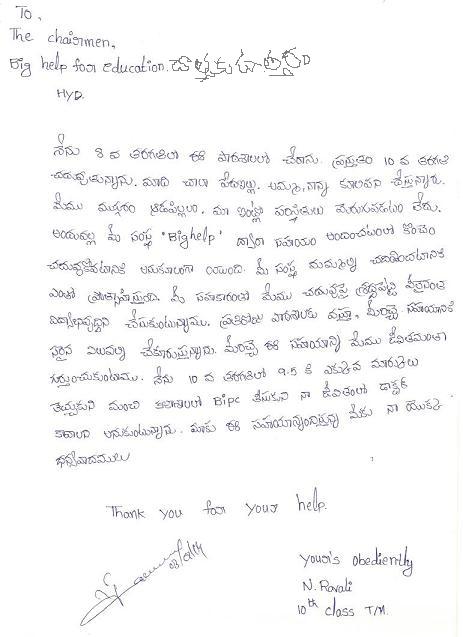 To,
The chairmen,
Big help for education.
HYD.
నేను 8 వ తరగతిలో ఈ పాఠశాలలో చేరాను. ప్రస్తుతం 10 వ తరగతి
చదువుతున్నాను. మాది చాలా పేదఇల్లు. అమ్మ, నాన్న కూలిపని చేస్తున్నారు.
మేము ముగ్గురం ఆడపిల్లలం. మా ఇంట్లో పరిస్థితులు మెరుగుపడటం లేదు.
అందువల్ల మీ సంస్థ "Bighelp" ద్వారా సహాయం అందించటంలో కొంచెం
చదువుకోవటానికి అనుకూలంగా యుంది. మీ సంస్థ మమ్మల్ని చదివించటానికి
ఎంతో ప్రోత్సాహిస్తుంది. మీ సహకారంతో మేము చదువుపై శ్రద్ధపెట్టి
విద్యాభివృద్ధిని చేసుకుంటున్నాము. ప్రతిరోజు పాఠశాలకు వస్తూ, మీరిచ్చే సహాయానికి
సరైన విలువల్ని చేకూరుస్తున్నాను. మీరిచ్చే ఈ సహాయాన్ని మేము జీవితమంతా
గుర్తుంచుకుంటాము. నేను 10 వ తరగతిలో 9.5 కి ఎక్కువ మార్కులు
తెచ్చుకుని మంచి కళాశాలలో Bipc తీసుకుని నా జీవితంలో డాక్టర్
కావాలని అనుకుంటున్నాను. మాకు ఈ సహాయాన్నందిస్తున్న మీకు నా యొక్క
ధన్యవాదములు
Thank you for your help.
your's obediently
N. Ravali
10th class T/M.